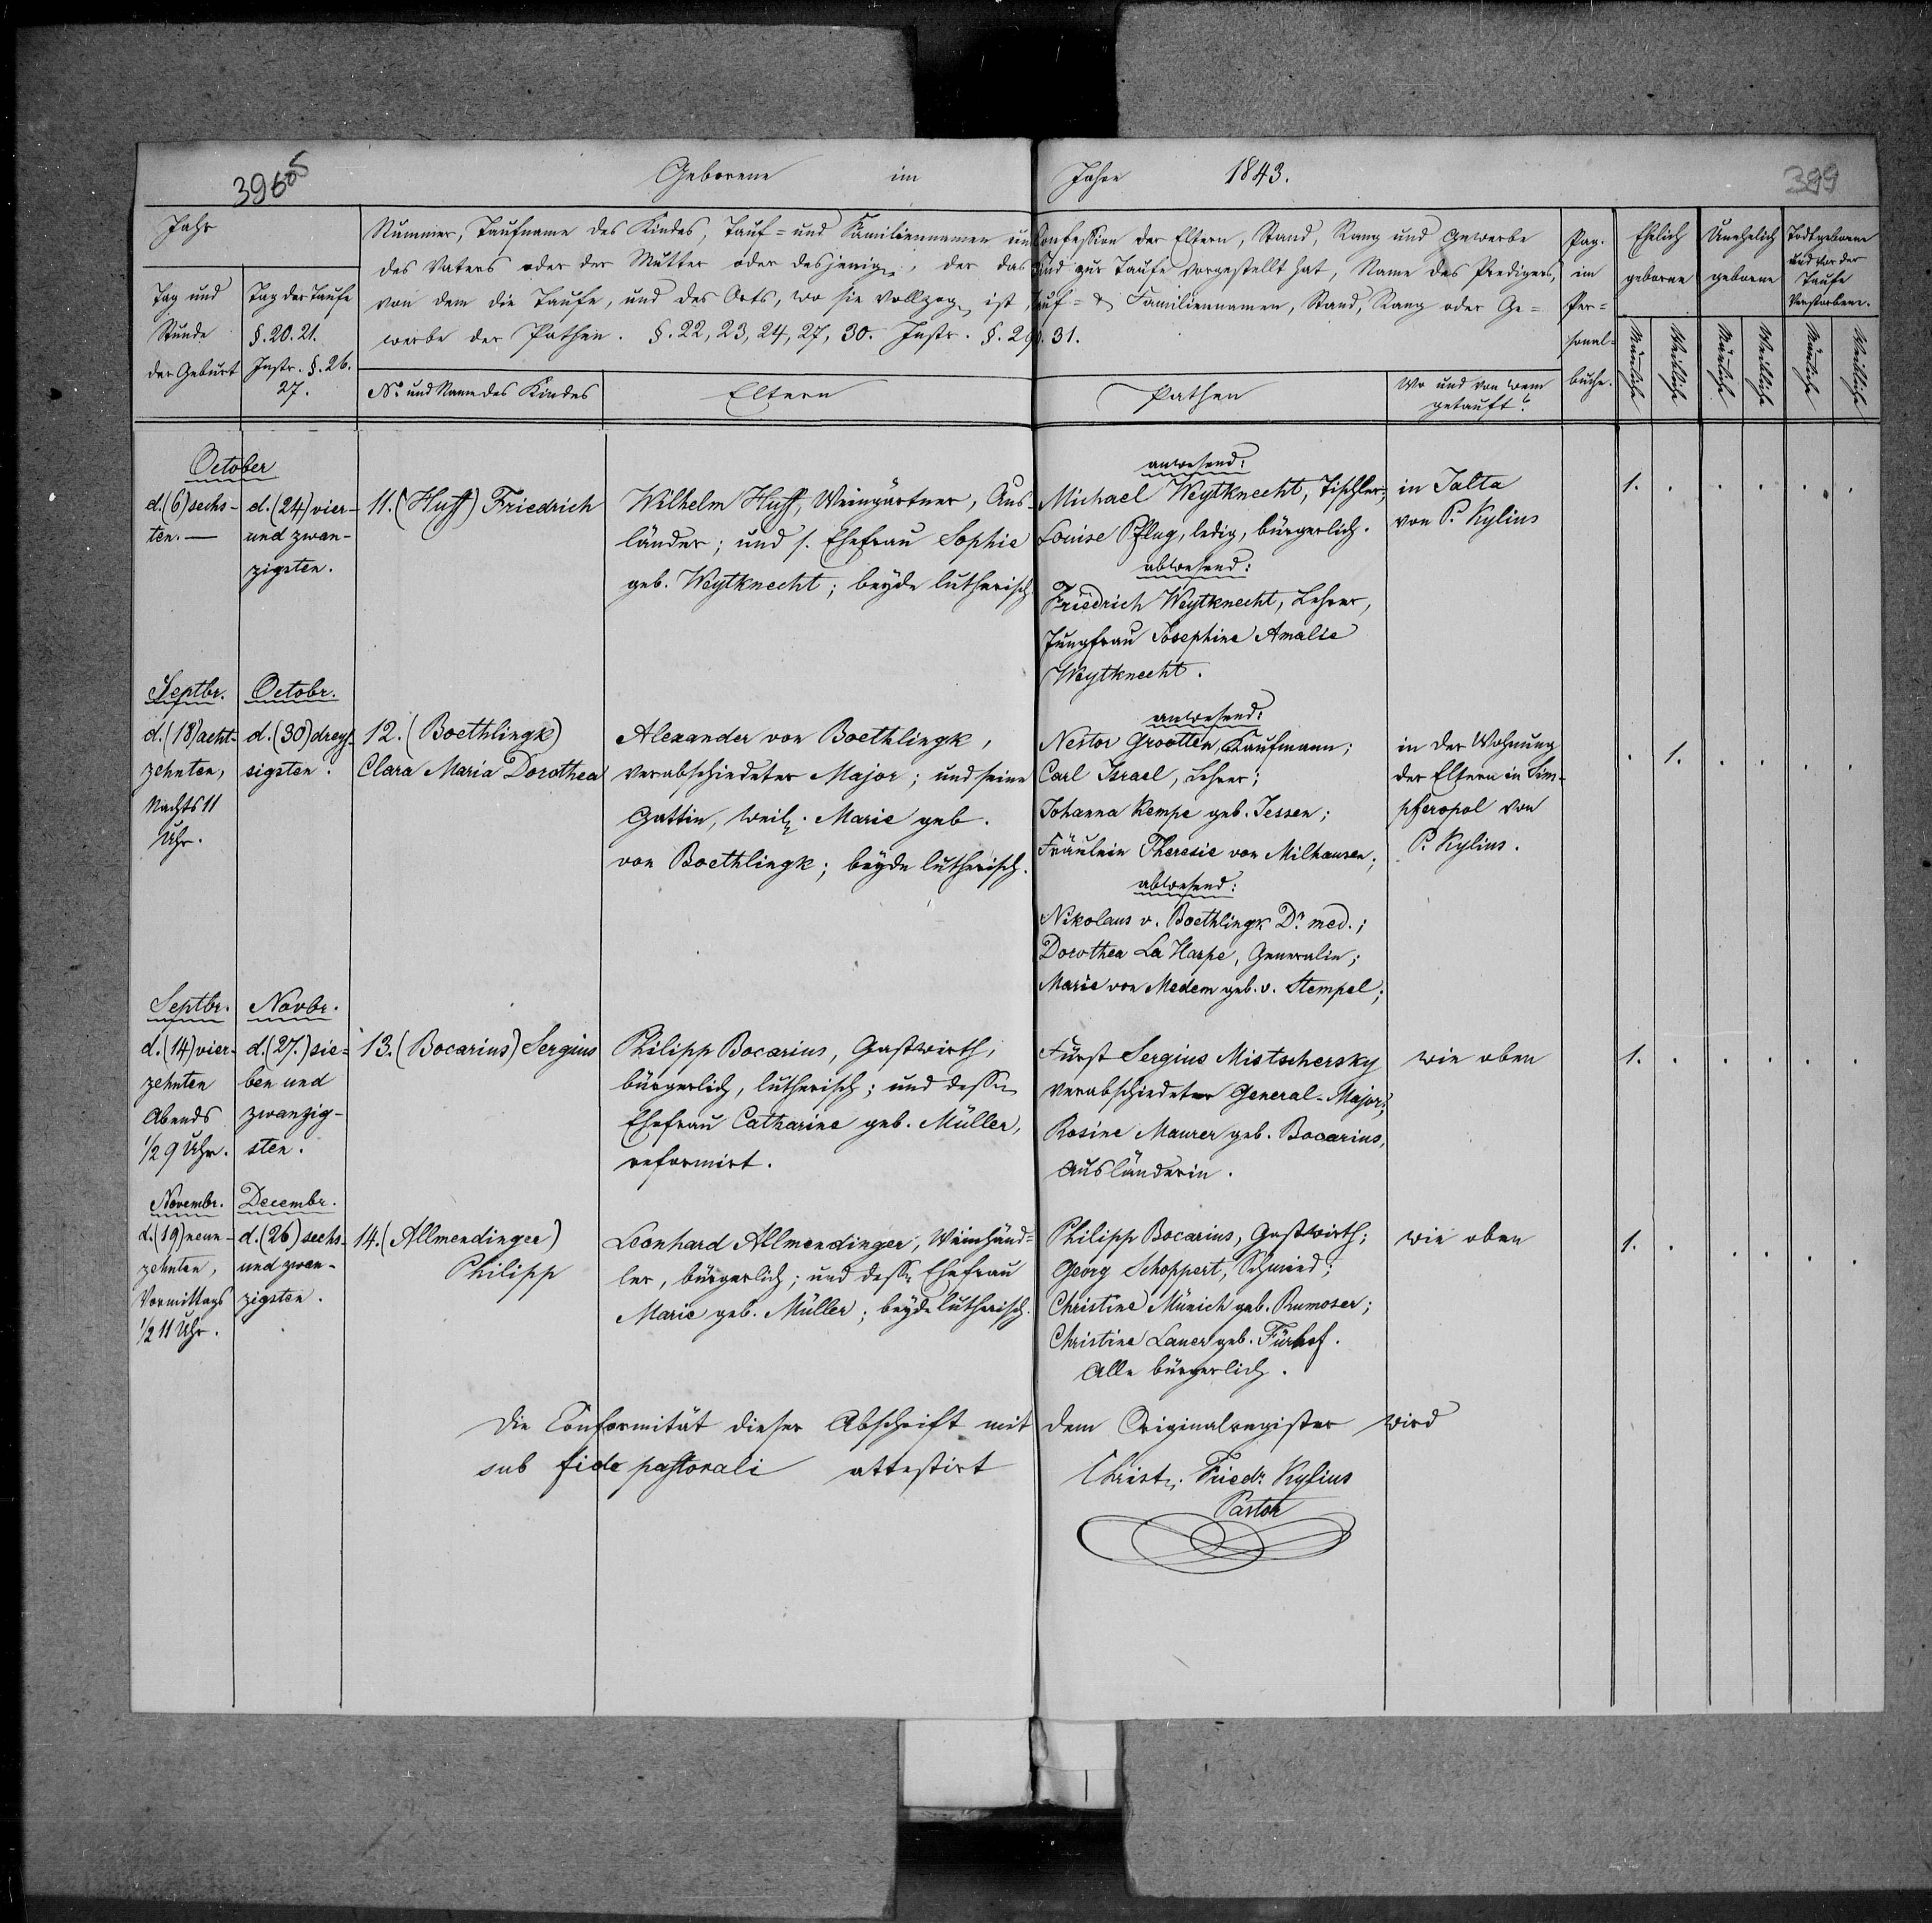 39605
Geborene im Jahre 1843.
399
Jahr
Tag und
Stunde
der Geburt
Tag der Taufe
§. 20. 21.
Instr. §. 26.
27.
Nummer, Taufname des Kindes, Tauf- und Familiennamen und Confession der Eltern, Stand, Rang und Gewerbe
des Vaters oder der Mutter oder desjenigen, der das Kind zur Taufe vorgestellt hat, Name des Predigers,
von dem die Taufe, und des Orts, wo sie vollzogen ist, Tauf- & Familiennamen, Stand, Rang oder Ge-
werbe der Pathen. §. 22, 23, 24, 27, 30. Instr. §. 29. 31.
No. und Name des Kindes
Eltern
Pathen
Wo und von wem
getauft?
Pag.
im
Per-
sonal-
buche.
Ehelich
geborene
Unehelich
geborene
Todtgeborene
und vor der
Taufe
Verstorbene.
Männliche
Weibliche
Männliche
Weibliche
Männliche
Weibliche
October
d. (6) sechs-
ten. —
d. (24) vier-
und zwan-
zigsten.
11. (Huff) Friedrich
Wilhelm Huff, Weingärtner, Aus-
länder; und s. Ehefrau Sophie
geb. Weytknecht; beyde lutherisch.
anwesend:
Michael Weytknecht, Tischler;
Louise Pflug, ledig, bürgerlich.
abwesend:
Friedrich Weytknecht, Lehrer,
Jungfrau Josephine Amalie
Weytknecht.
in Jalta
von P. Kylius
1. . . . . .
Septbr.
d. (18) acht-
zehnten,
Nachts 11
Uhr.
Octobr.
d. (30) dreys-
sigsten.
12. (Boethlingk)
Clara Maria Dorothea
Alexander von Boethlingk,
verabschiedeter Major; und seine
Gattin, weil. Marie geb.
von Boethlingk; beyde lutherisch.
anwesend:
Nestor Grootten, Kaufmann;
Carl Israel, Lehrer;
Johanna Kempe geb. Jessen;
Fräulein Theresie von Milhausen;
abwesend:
Nikolaus v. Boethlingk Dr. med.;
Dorothea La Harpe, Generalin;
Marie von Medem geb. v. Stempel;
in der Wohnung
der Eltern in Sim-
pheropol von
P. Kylius.
. 1. . . . .
Septbr.
d. (14) vier-
zehnten
Abends
1/2 9 Uhr.
Novbr.
d. (27.) sie-
ben und
zwanzig-
sten.
13. (Bocarius) Sergius
Philipp Bocarius, Gastwirth,
bürgerlich, lutherisch; und dessen
Ehefrau Catharine geb. Müller,
reformirt.
Fürst Sergius Mistschersky
verabschiedeter General-Major;
Rosine Maurer geb. Bocarius,
Ausländerin.
wie oben
1. . . . . .
Novembr.
d. (19) neun-
zehnten,
Vormittags
1/2 11 Uhr.
Decembr.
d. (26) sechs-
und zwan-
zigsten.
14. (Allmendinger)
Philipp
Leonhard Allmendinger, Weinhänd-
ler, bürgerlich; und dessen Ehefrau
Marie geb. Müller; beyde lutherisch.
Philipp Bocarius, Gastwirth;
Georg Schoppert, Schmied;
Christine Münich geb. Rumoser;
Christine Lauer geb. Fürhof.
Alle bürgerlich.
wie oben
1. . . . . .
Die Conformität dieser Abschrift mit dem Originalregister wird
sub fide pastorali attestirt
Christ. Friedr. Kylius
Pastor